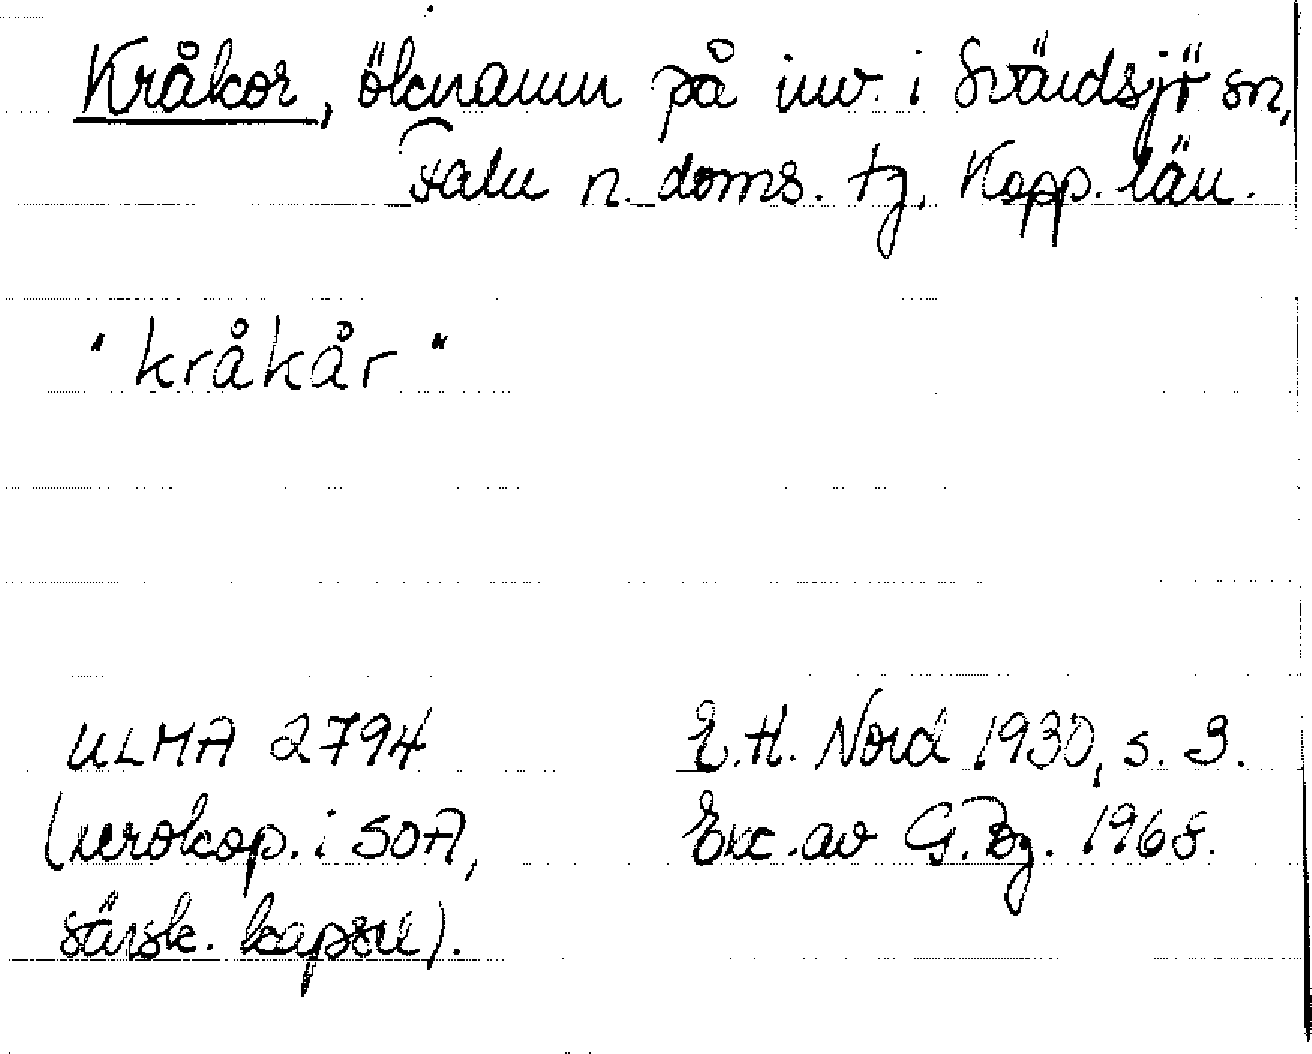 Kråkor, öknamn på inv. i Svärdsjö sn,
Falu n. doms. tg, Kopp. län.
"kråkår"
ULMA 2794
(xerokop. i SOA,
särsk. kapsel).
E.H. Nord 1930, s. 3.
Exc. av G.Bg. 1968.